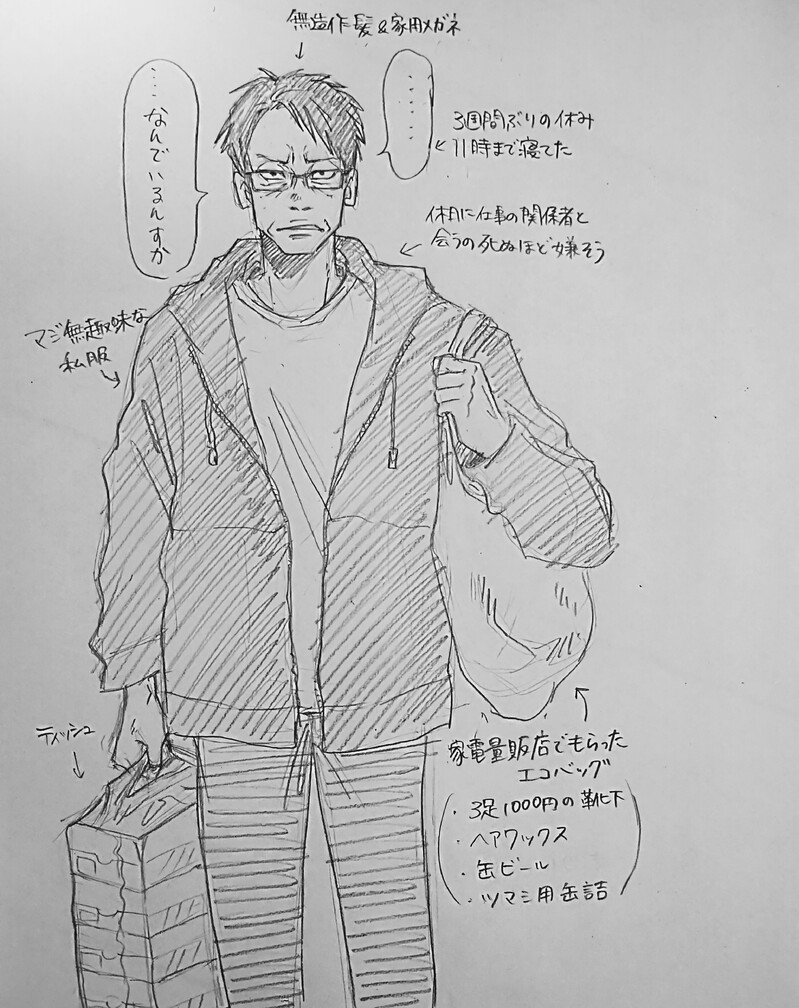 無造作髪&家用メガネ
………
3週間ぶりの休み
11時まで寝てた
…なんでいるんすか
休日に仕事の関係者と
会うの死ぬほど嫌そう
マジ無趣味な
私服
ティッシュ
家電量販店でもらった
エコバッグ
・3足1000円の靴下
・ヘアワックス
・缶ビール
・ツマミ用缶詰